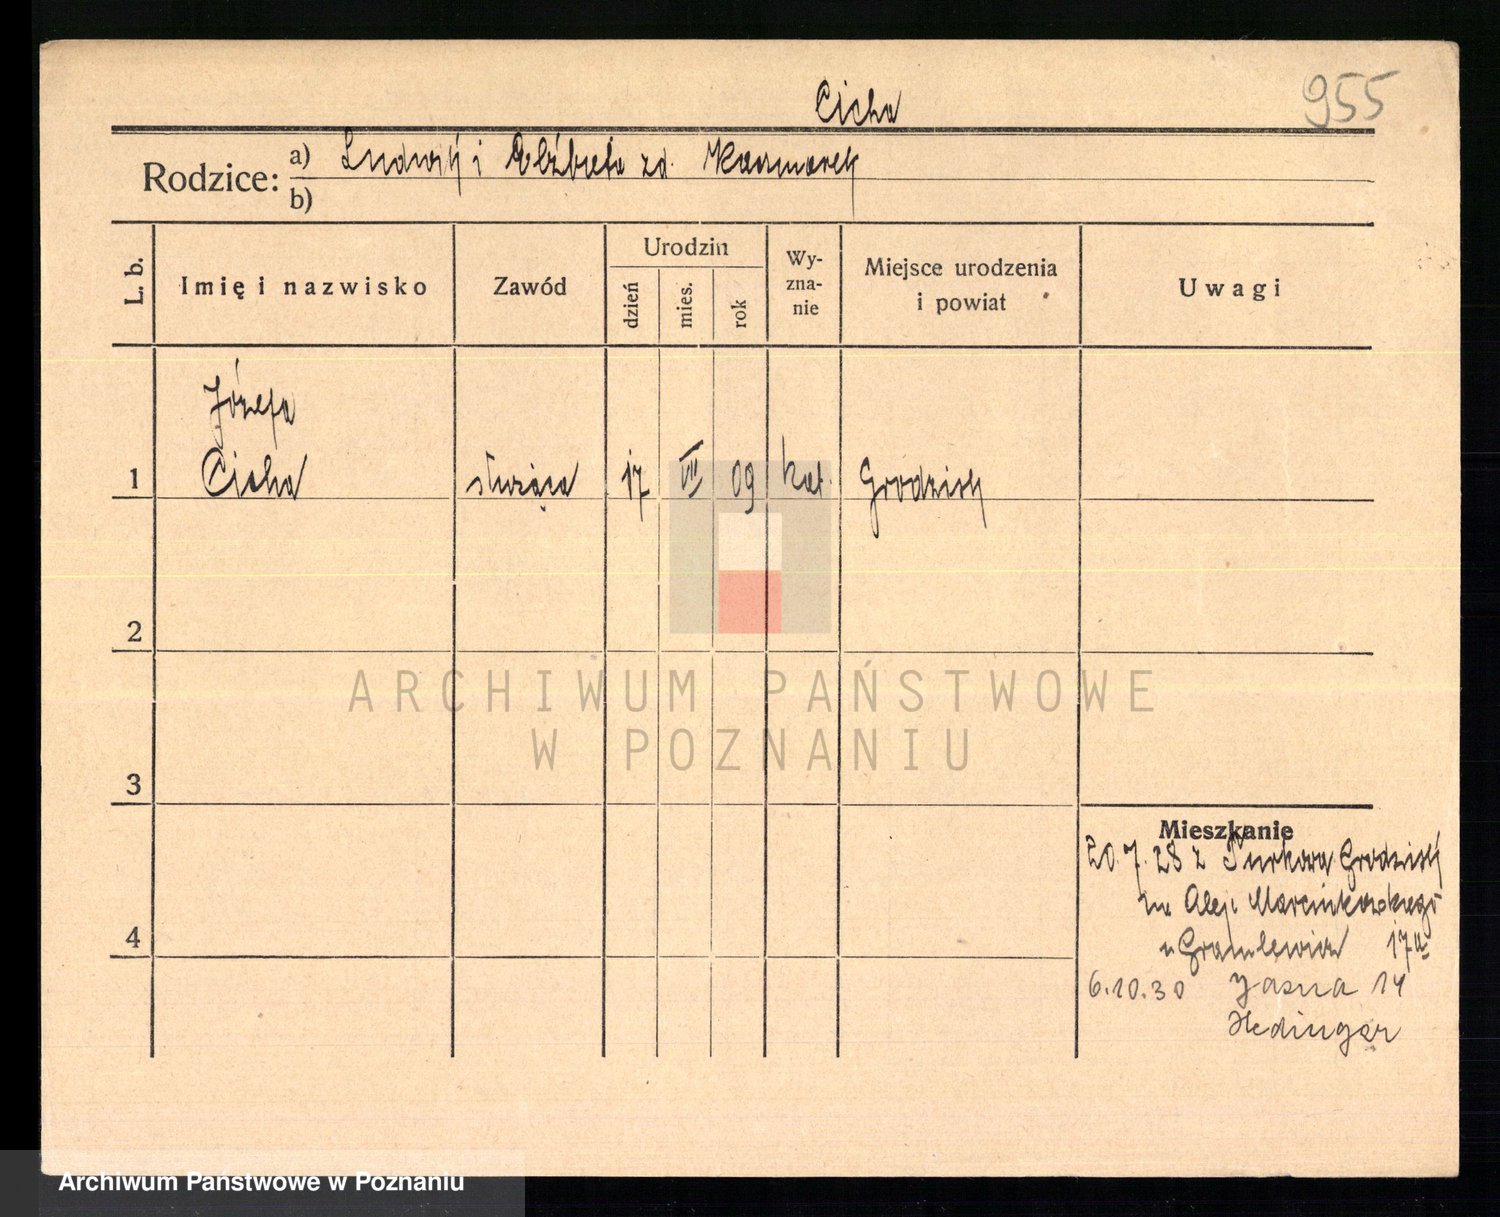 955
Cicha
Rodzice: a) Ludwik i Elżbieta zd. Kaczmarek
b)
L. b. Imię i nazwisko Zawód Urodzin dzień mies. rok Wy-zna-nie Miejsce urodzenia i powiat Uwagi
Józefa
1 Cicha służąca 17 VII 09 kat. Grodzisk
2
3
4
Mieszkanie
20.7.28 z Grodzisk
na Alej. Marcinkowskiego
17a
6.10.30 Jasna 14
Hedinger
ARCHIWUM PAŃSTWOWE
W POZNANIU
Archiwum Państwowe w Poznaniu